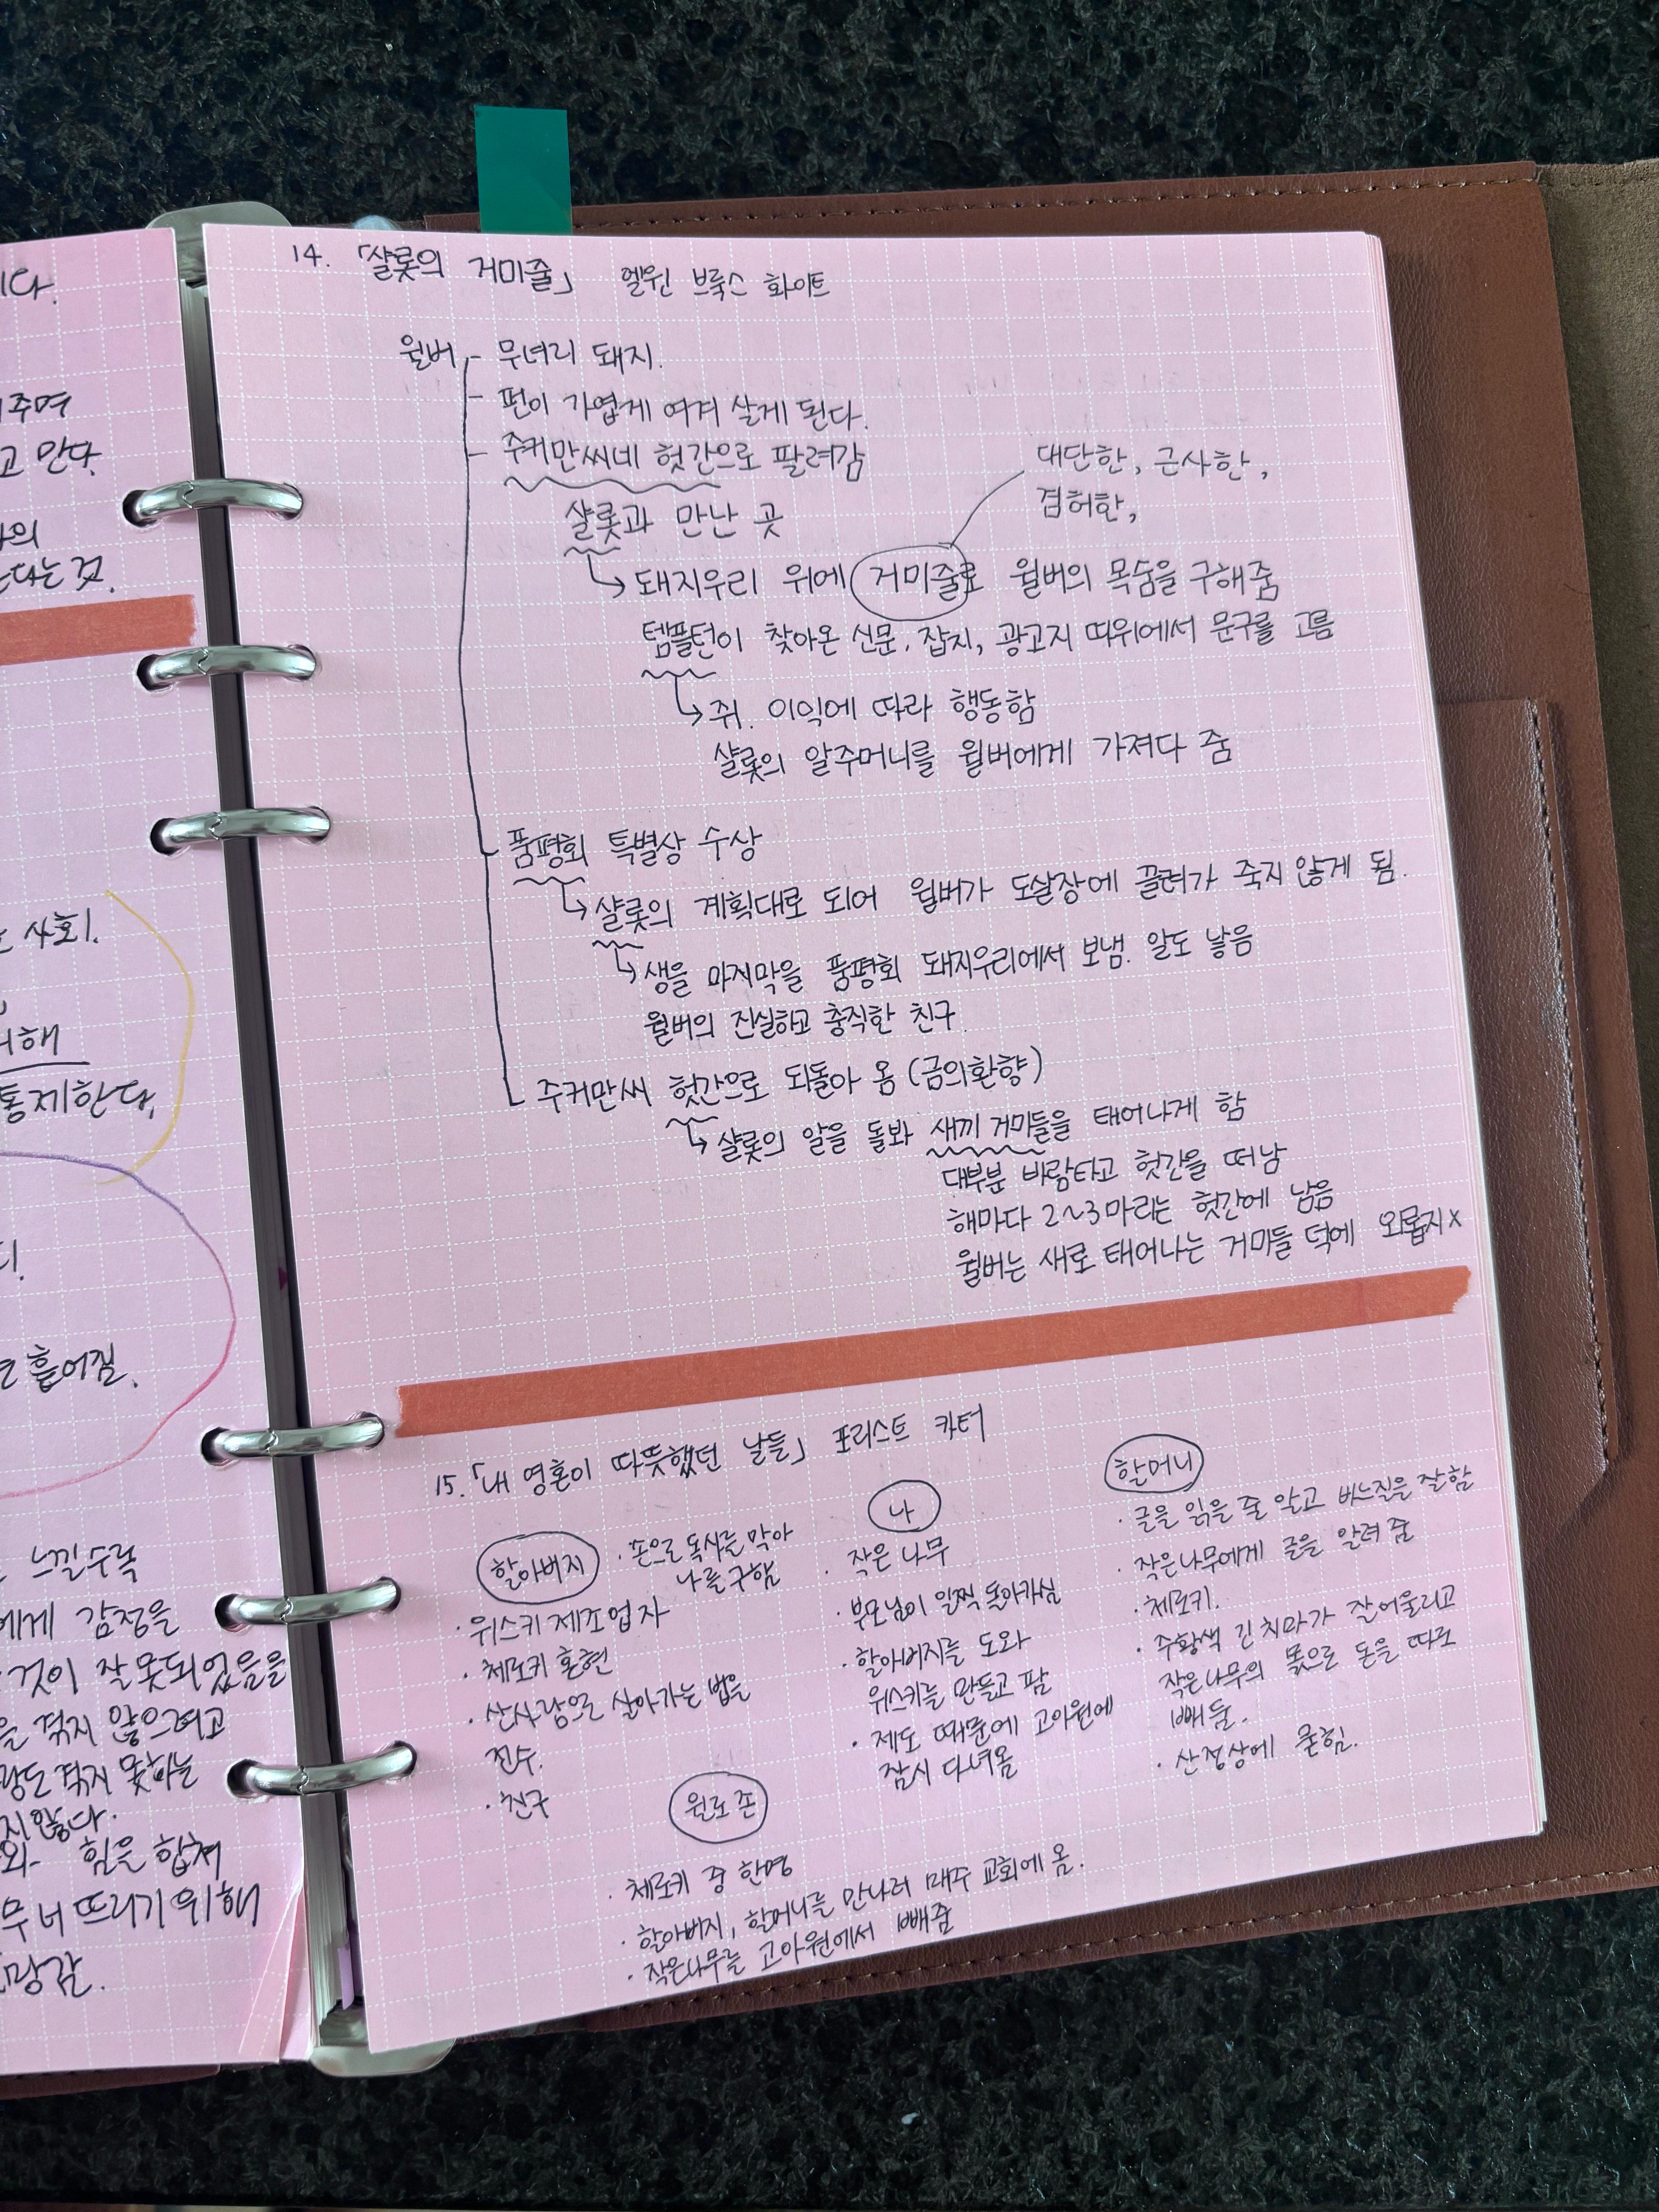 니다.
주며
고 만다.
의
다는 것.
사회.
위해
통제한다.
다.
흩어짐.
느낄수록
에게 감정을
것이 잘못되었음을
을 겪지 않으려고
겪지 못하는
지 않다.
와 힘을 합쳐
무너뜨리기 위해
망감.
14. 「샬롯의 거미줄」 엘윈 브룩스 화이트
윌버 - 무녀리 돼지.
- 펀이 가엽게 여겨 살게 된다.
- 주커만씨네 헛간으로 팔려감
대단한, 근사한,
겸허한,
샬롯과 만난 곳
→ 돼지우리 위에 거미줄로 윌버의 목숨을 구해줌
템플턴이 찾아온 신문, 잡지, 광고지 따위에서 문구를 고름
→ 쥐. 이익에 따라 행동함
샬롯의 알주머니를 윌버에게 가져다 줌
- 품평회 특별상 수상
→ 샬롯의 계획대로 되어 윌버가 도살장에 끌려가 죽지 않게 됨.
→ 생을 마지막을 품평회 돼지우리에서 보냄. 알도 낳음
윌버의 진실하고 충직한 친구.
- 주커만씨 헛간으로 되돌아 옴 (금의환향)
→ 샬롯의 알을 돌봐 새끼 거미들을 태어나게 함
대부분 바람타고 헛간을 떠남
해마다 2~3마리는 헛간에 남음
윌버는 새로 태어나는 거미들 덕에 외롭지 x
15. 「내 영혼이 따뜻했던 날들」 포리스트 카터
할아버지
· 손으로 독사를 막아
나를 구함
· 위스키 제조업자
· 체로키 혼혈
· 산사람으로 살아가는 법을
전수.
· 친구
나
· 작은 나무
· 부모님이 일찍 돌아가심
· 할아버지를 도와
위스키를 만들고 팜
· 제도 때문에 고아원에
잠시 다녀옴
할머니
· 글을 읽을 줄 알고 바느질을 잘함
· 작은나무에게 글을 알려 줌
· 체로키.
· 주황색 긴 치마가 잘 어울리고
작은나무의 몫으로 돈을 따로
빼 둠.
· 산 정상에 묻힘.
윌로 존
· 체로키 중 한명
· 할아버지, 할머니를 만나러 매주 교회에 옴.
· 작은나무를 고아원에서 빼줌